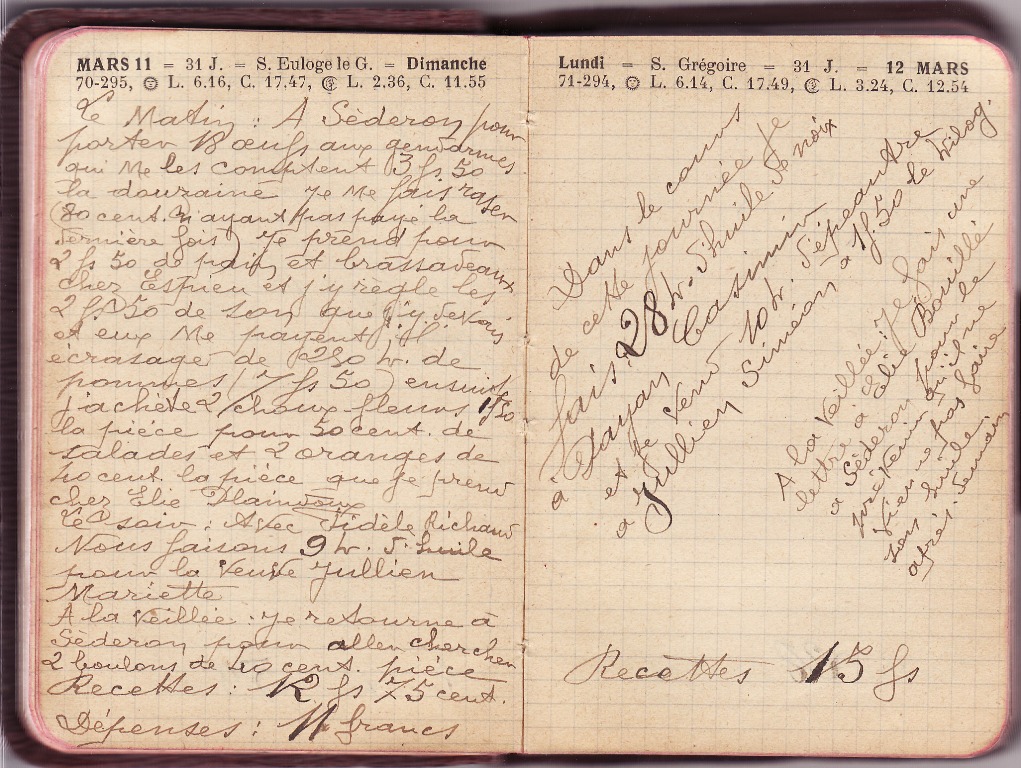 MARS 11 = 31 J. = S. Euloge le G. = Dimanche
70-295, L. 6.16, C. 17.47, L. 2.36, C. 11.55
Le Matin : A Séderon pour
porter 18 œufs aux gendarmes
qui me les comptent 3 fs. 50
la douzaine Je me fais raser
(80 cent. n'ayant pas payé la
dernière fois) Je prend pour
2 fs 50 de pain et brassadeaux
chez Espieu et j'y règle les
2 fs 50 de son que j'y devais
et eux me payent
écrasage de 250 k. de
pommes (7 fs 50) ensuite
j'achète 2 choux fleurs 1f50
la pièce pour 50 cent. de
salades et 2 oranges de
40 cent la pièce que je prend
chez Elie Plaindoux
Le soir : Avec Fidèle Richaud
Nous faisons 9 k. d'huile
pour la Veuve Jullien
Mariette
A la Veillée : Je retourne à
Séderon pour aller chercher
2 boulons de 40 cent. pièce
Recettes : 12 fs 75 cent.
Dépenses : 11 francs
Lundi = S. Grégoire = 31 J. = 12 MARS
71-294, L. 6.14, C. 17.49, L. 3.24, C. 12.54
Dans le cours
de cette journée Je
fais 28 k. d'huile de noix
à Dayan Casimir
et je vend 10 k. d'épeautre
à Jullien Siméon à 1f.50 le kilog.
A la Veillée : Je fais une
lettre à Elie Bouillé
à Séderon pour le
prévenir qu'il ne
vienne pas faire
son huile
après-demain
Recettes 15 fs